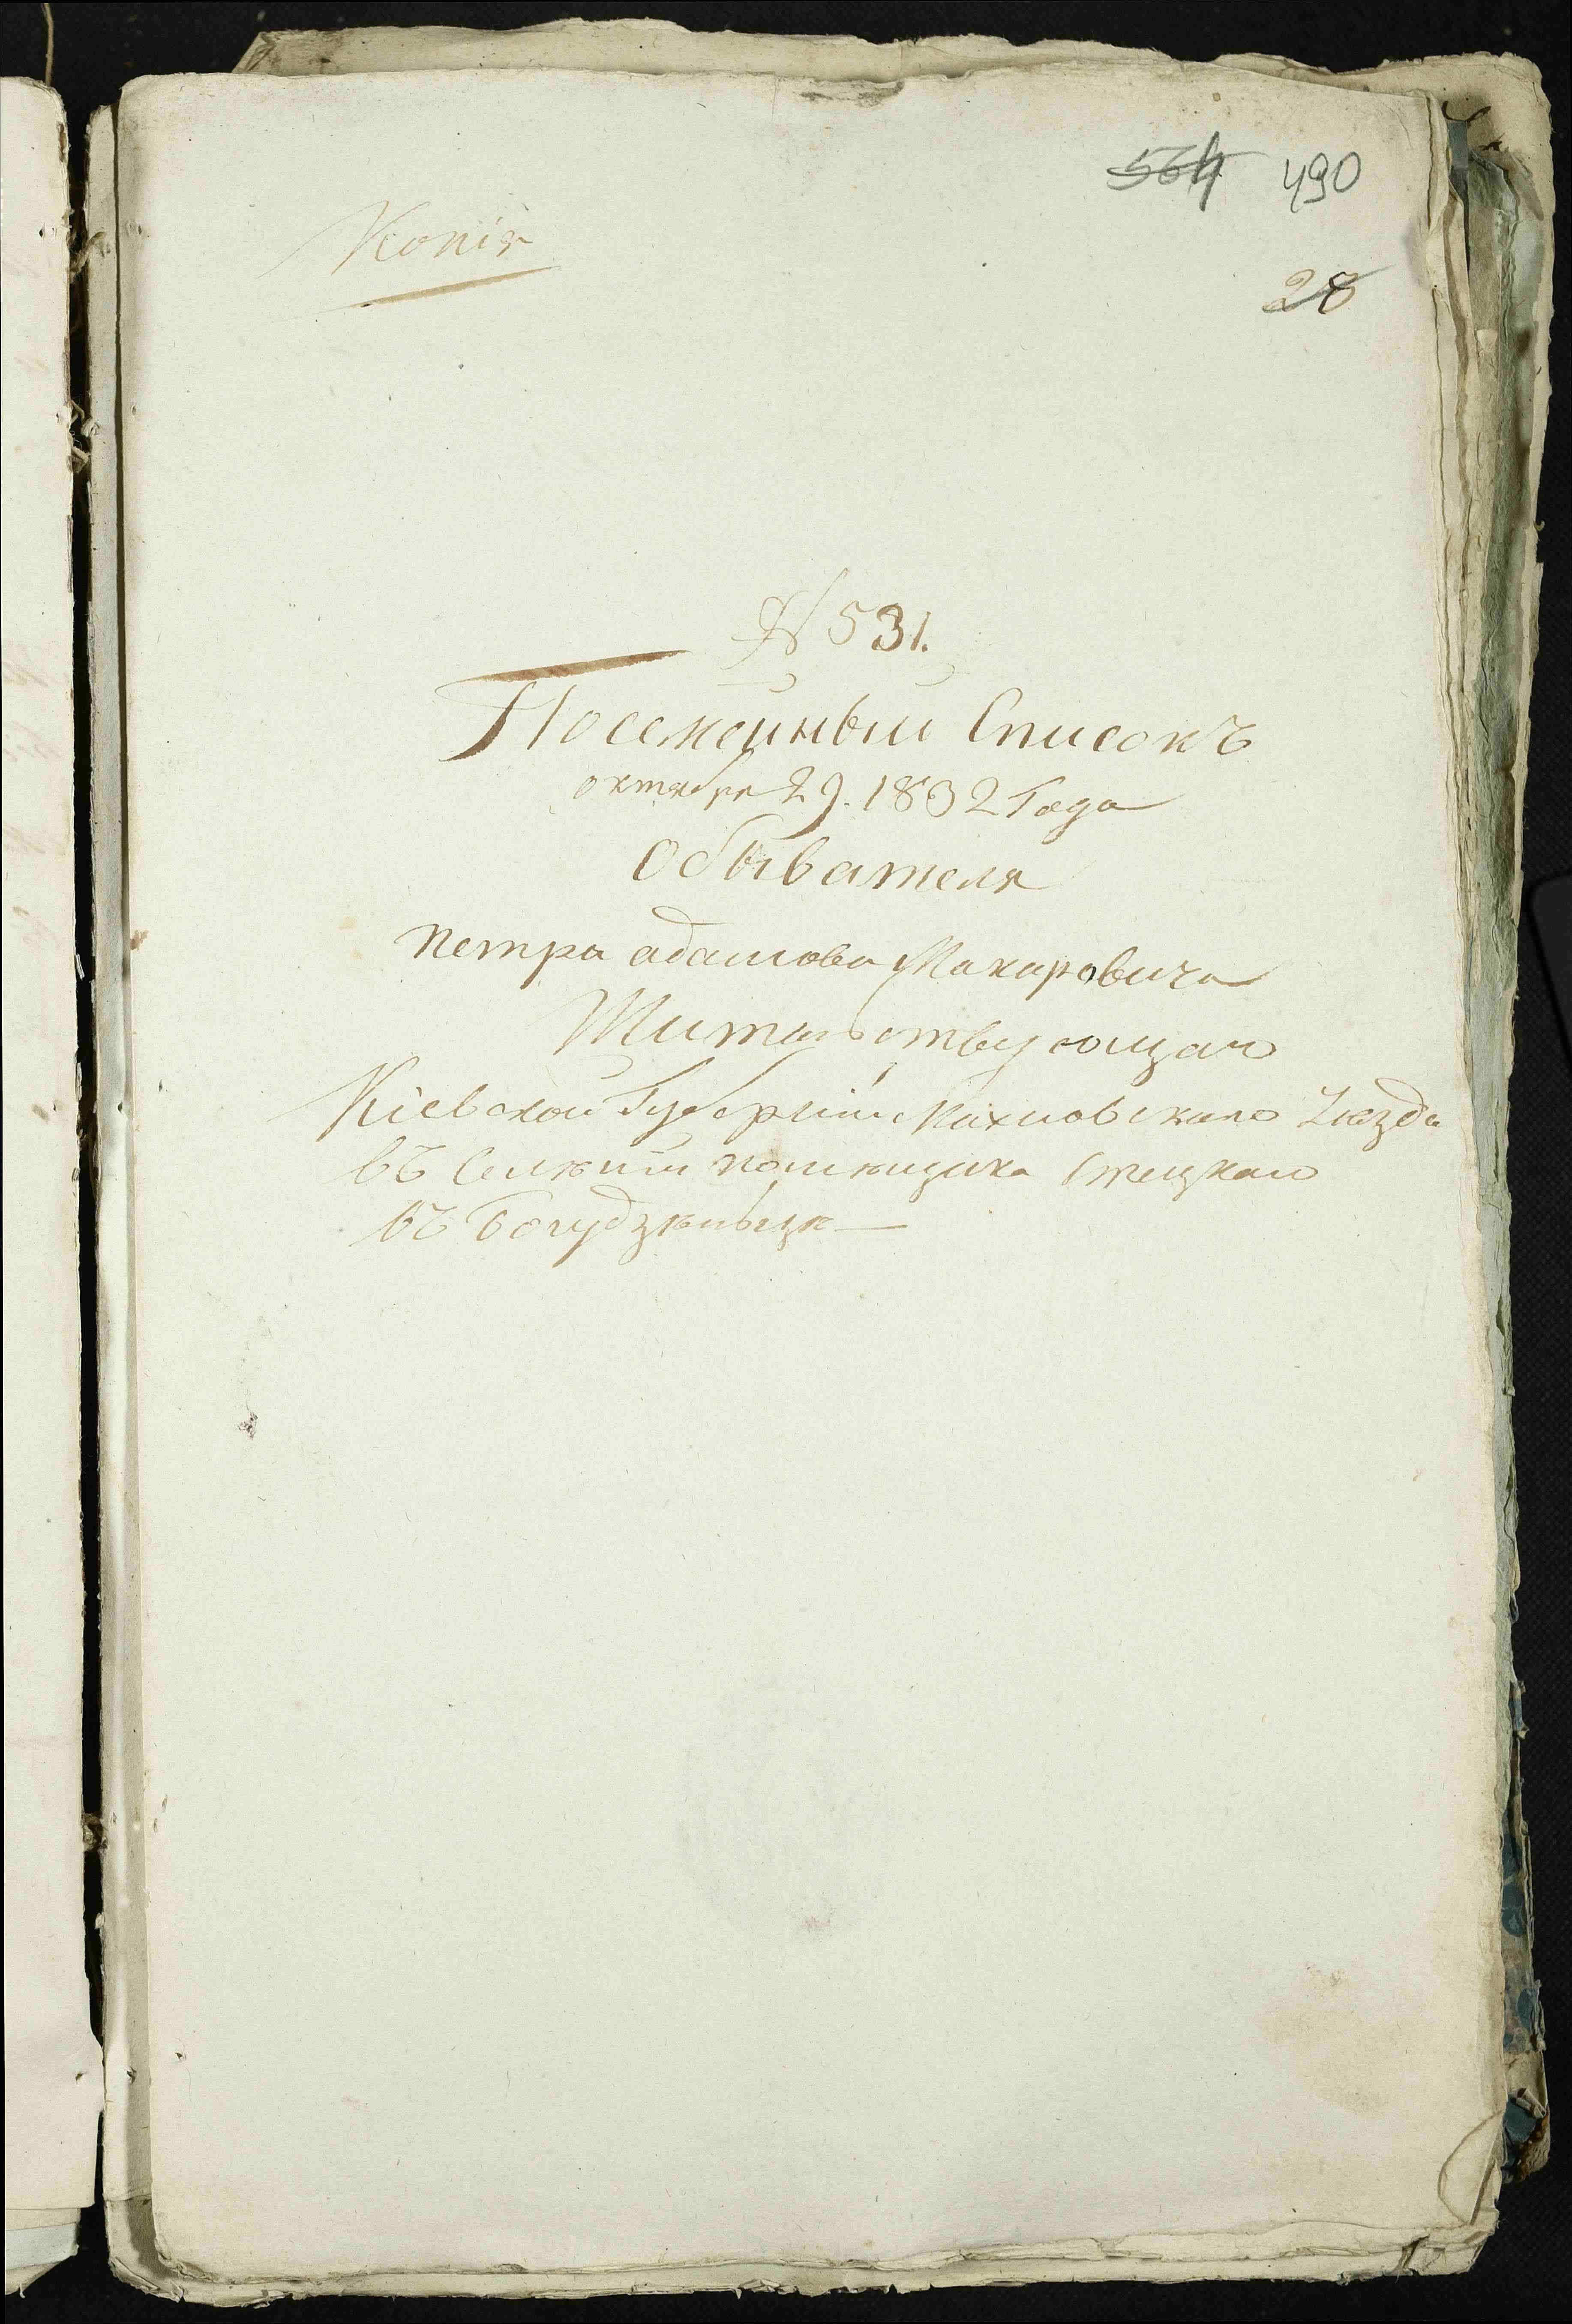 564 490
Копія
28
№ 531.
Посемейный Списокъ
октября 29. 1832 Года
Обывателя
Петра адамова Макаровича
Жительствующаго
Кіевской Губерніи Махновского Уѣзда
въ Селѣніи помѣщика Стецкаго
въ